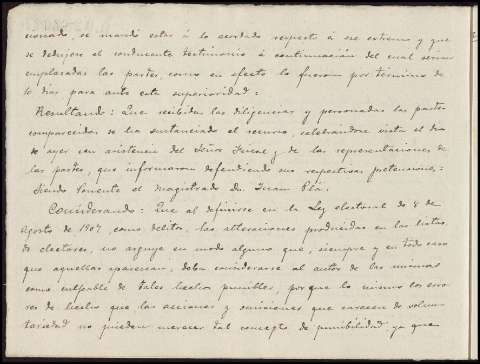 cionado, se mandó estar á lo acordado respecto á ese extremo y que
se dedujese el conducente testimonio á continuación del cual serian
emplazadas las partes, como en efecto lo fueron por término de
10 dias para ante esta superioridad:
Resultando: Que recibidas las diligencias y personadas las partes
comparecidas se ha sustanciado el recurso, celebrandose vista el dia
de ayer con asistencia del Señor Fiscal y de las representaciones de
las partes, que informaron defendiendo sus respectivas pretensiones:
Siendo Ponente el Magistrado Dn. Juan Pla:
Considerando: Que al definirse en la Ley electoral de 8 de
Agosto de 1907, como delitos, las alteraciones producidas en las listas
de electores, no arguye en modo alguno que, siempre y en todo caso
que aquellas aparezcan, deba considerarse al autor de las mismas
como culpable de tales hechos punibles, porque lo mismo los erro-
res de hecho que las acciones y omisiones que carecen de volun-
tariedad no pueden merecer tal concepto de punibilidad ya que